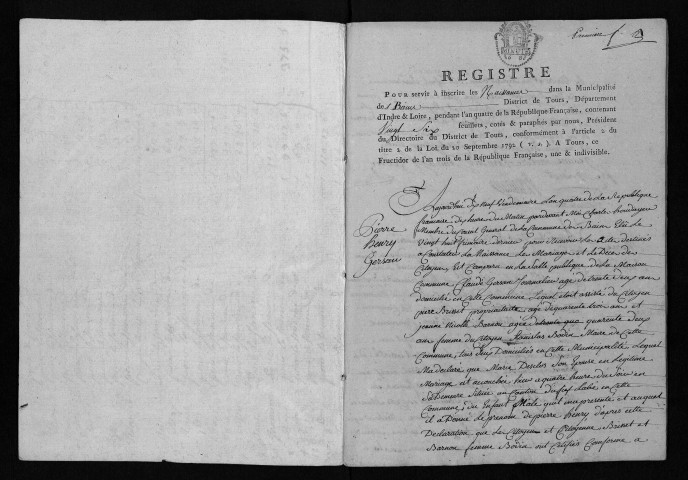 Première
REGISTRE
POUR servir à inscrire les Naissances dans la Municipalité
de District de Tours, Département
d'Indre & Loire, pendant l'an quatre de la République Française, contenant
Vingt Six feuillets, cotés & paraphés par nous, Président
du Directoire du District de Tours, conformément à l'article 2 du
titre 2 de la Loi du 20 Septembre 1792 ( v. s. ). A Tours, ce
Fructidor de l'an trois de la République Française, une & indivisible.
Pierre
henry
Aujourdhui dix neuf Vendemiaire L'an quatre de La Republique
francaise dix heures du Matin pardevant Moi Charle
Membre du Conseil General de la Commune de Elu le
Vingt huit dernier pour Recevoir Les actes destinés
a Constater La Naissance Le Mariage et Le Deces des
Citoyens Est Comparu en La Salle publique de La Maison
Commune Claude Journalier age de trente deux ans
domicilie en cette Commune Lequel etoit assisté du Citoyen
pierre Brunet propriétaire agé de quarente trois ans et
jeanne Nicolle agée de quarente deux
ans femme du Citoyen Stanislas Bodin Maire de Cette
Commune, tous Deux Domiciliés en Cette Municipalité Lequel
Ma declaré que Marie Son Epouse en Legitime
Mariage est acouchée hier a quatre heures du Soir en
Sa Demeure Située au Canton du en Cette
Commune, du Enfant Male quil ma presenté et auquel
il a Donné Le prenom de pierre henry d'apres cette
Declaration que Les Citoyen et Citoyenne Brunet et
femme Bodin ont Certifiés Conforme a